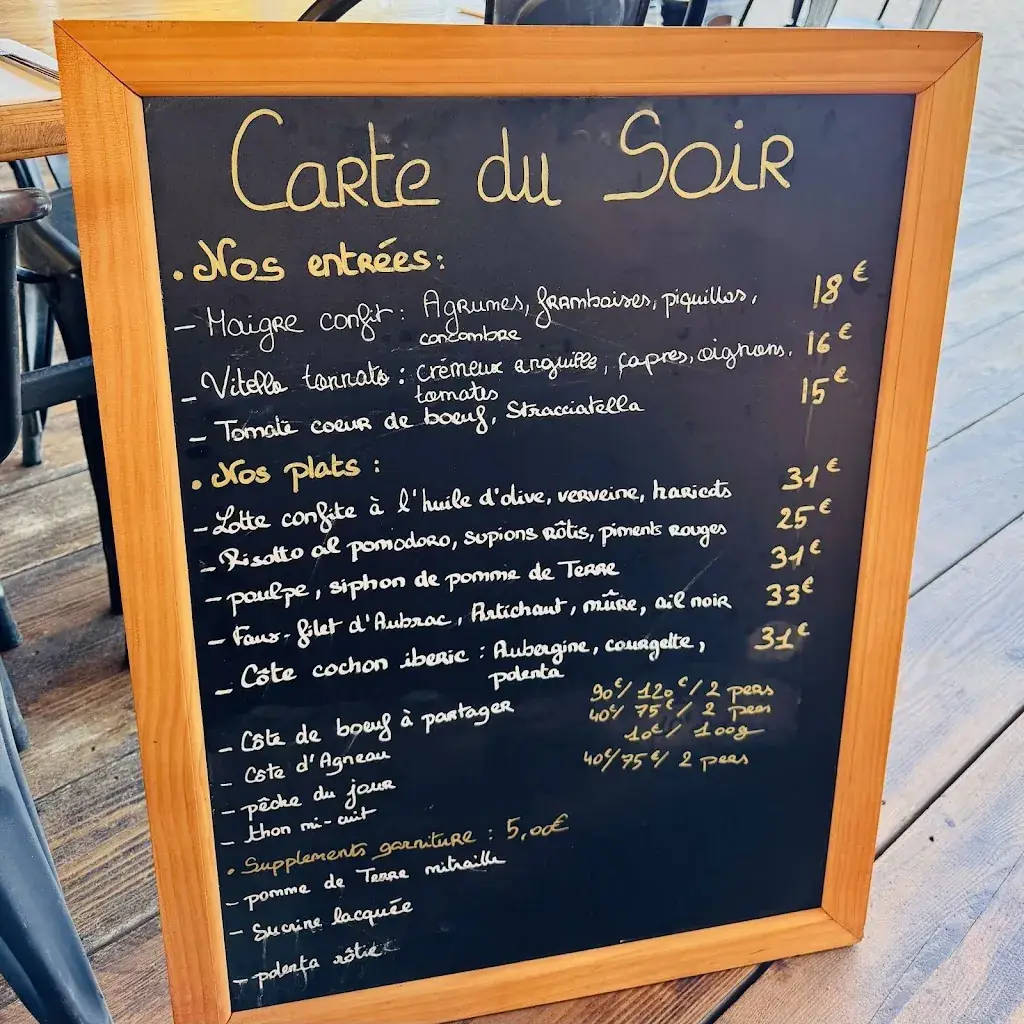 Carte du Soir
• Nos entrées :
- Maigre confit : Agrumes, framboises, piquillos, 18€
concombre
- Vitello tonnato : crémeux anguille, capres, oignons, 16€
tomates
- Tomate coeur de boeuf, Stracciatella 15€
• Nos plats :
- Lotte confite à l'huile d'olive, verveine, haricots 31€
- Risotto al pomodoro, supions rôtis, piments rouges 25€
- poulpe, siphon de pomme de Terre 31€
- Faux-filet d'Aubrac, Artichaut, mûre, ail noir 33€
- Côte cochon iberic : Aubergine, courgette, 31€
polenta
- Côte de boeuf à partager 90€/ 120€/ 2 pers
- Côte d'Agneau 40€/ 75€/ 2 pers
- pêche du jour 10€/ 100g
- thon mi-cuit 40€/75€/ 2 pers
• Supplements garniture : 5,00€
- pomme de Terre mitraille
- Sucrine lacquée
- polenta rôtie